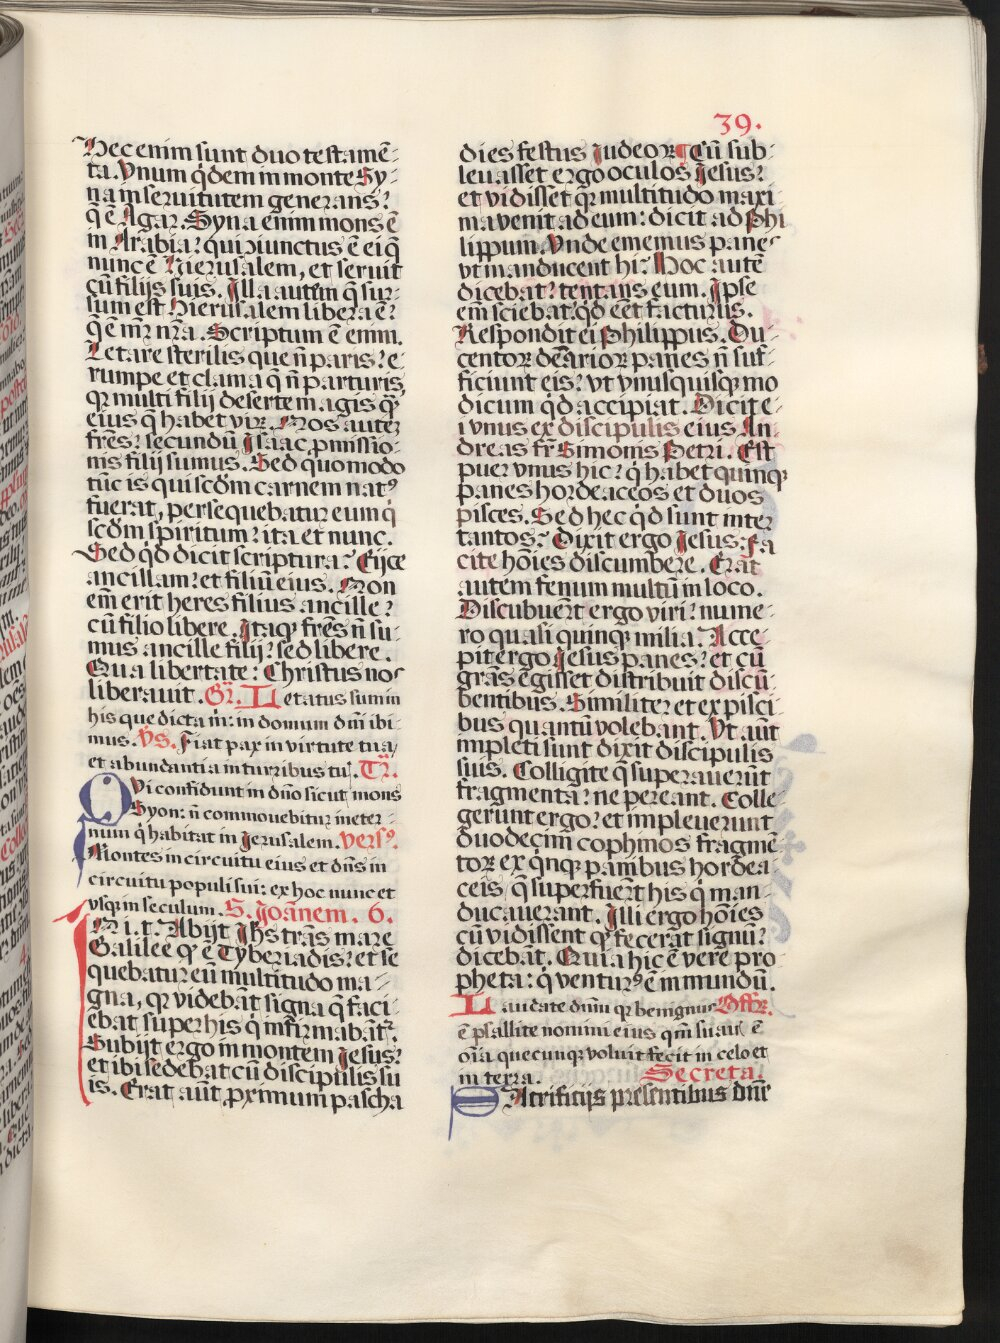 39.
Hec enim sunt duo testamē-
ta. Vnum q̇dem in monte Sy-
na in seruitutem generans?
q̄ ē Agar. Syna enim mons ē
in Arabia? qui ɔiunctus ē ei q̄
nunc ē Hierusalem, et seruit
cū filijs suis. Illa autem q̄ sur-
sum est Hierusalem libera ē?
q̄ ē mr̄ nr̄a. Scriptum ē enim.
Letare sterilis que n̄ paris? e-
rumpe et clama q̄ n̄ parturis,
qꝛ multi filij deserte magis qꝫ̄
eius q̄ habet virꝫ. Nos auteꝫ
frēs? secundū Isaac ꝓmissio-
nis filij sumus. Sed quomodo
tūc is qui scd̄m carnem natꝰ
fuerat, persequebatur eum q̇
scd̄m spiritum? ita et nunc.
Sed qd̄ dicit scriptura? Eijce
ancillam? et filiū eius. Non
em̄ erit heres filius ancille?
cū filio libere. Itaqꝫ frēs n̄ su-
mus ancille filij? sed libere.
Qua libertate: Christus nos
liberauit. Gr̄. Letatus sum in
his que dicta s̄t m̄: in domum dn̄i ibi-
mus. V̄S. Fiat pax in virtute tua,
et abundantia in turribus tuis. Tr̄.
Qvi confidunt in dn̄o sicut mons
Syon: n̄ commouebitur in eter-
num q̇ habitat in Jerusalem. Versꝰ.
Montes in circuitu eius et dn̄s in
circuitu populi sui: ex hoc nunc et
vsqꝫ in seculum. S. Joānem. 6.
IN i. t. Abijt Ihs trās mare
Galilee qꝫ ē Tyberiadis? et se-
quebatur eū multitudo ma-
gna, qꝛ videbāt signa q̄ faci-
ebat super his q̇ infirmabātꝛ.
Subijt ergo in montem Jesus?
et ibi sedebat cū discipulis su
is. Erat aūt ꝓximum pascha
dies festus Judeoꝝ. ¶ Cū sub-
leuasset ergo oculos Jesus?
et vidisset qꝛ multitudo maxi
ma venit ad eum: dicit ad Phi
lippum. Vnde ememus panes
vt manducent hi? Hoc autē
dicebat? tentans eum. Ipse
em̄ sciebat. qd̄ eēt facturus.
Respondit ei Philippus. Du-
centoꝝ denarioꝝ panes n̄ suf-
ficiunt eis? vt vnusquisqꝫ mo
dicum q̇d accipiat. Dicit e-
i vnus ex discipulis eius. An-
dreas fr̄ Simonis Petri. Est
puer vnus hic? q̇ habet quinqꝫ
panes hordeaceos et duos
pisces. Sed hec q̇d sunt inter
tantos? Dixit ergo Jesus. Fa
cite hoīes discumbere. Erat
autem fenum multū in loco.
Discubuert̄ ergo viri? nume-
ro quasi quinqꝫ milia. Acce-
pit ergo Jesus panes? et cū
grās egisset distribuit discū-
bentibus. Similiter et ex pisci
bus quantū volebant. Vt aūt
impleti sunt dixit discipulis
suis. Colligite q̄ superauerūt
fragmenta? ne pereant. Colle-
gerunt ergo? et impleuerunt
duodecim cophinos fragmē-
toꝝ ex q̇nqꝫ panibus hordea-
ceis, q̄ superfuert̄ his q̇ man-
ducauerant. Illi ergo hoīes
cū vidissent qꝫ fecerat signū?
dicebāt. Quia hic ē vere pro
pheta: q̇ venturꝰ ē in mundū.
Laudate dn̄m qꝛ benignus Offꝝ.
ē psallite nomini eius qm̄ suauis ē
oīa quecunqꝫ voluit fecit in celo et
in terra. Secreta.
SAcrificijs presentibus dn̄e